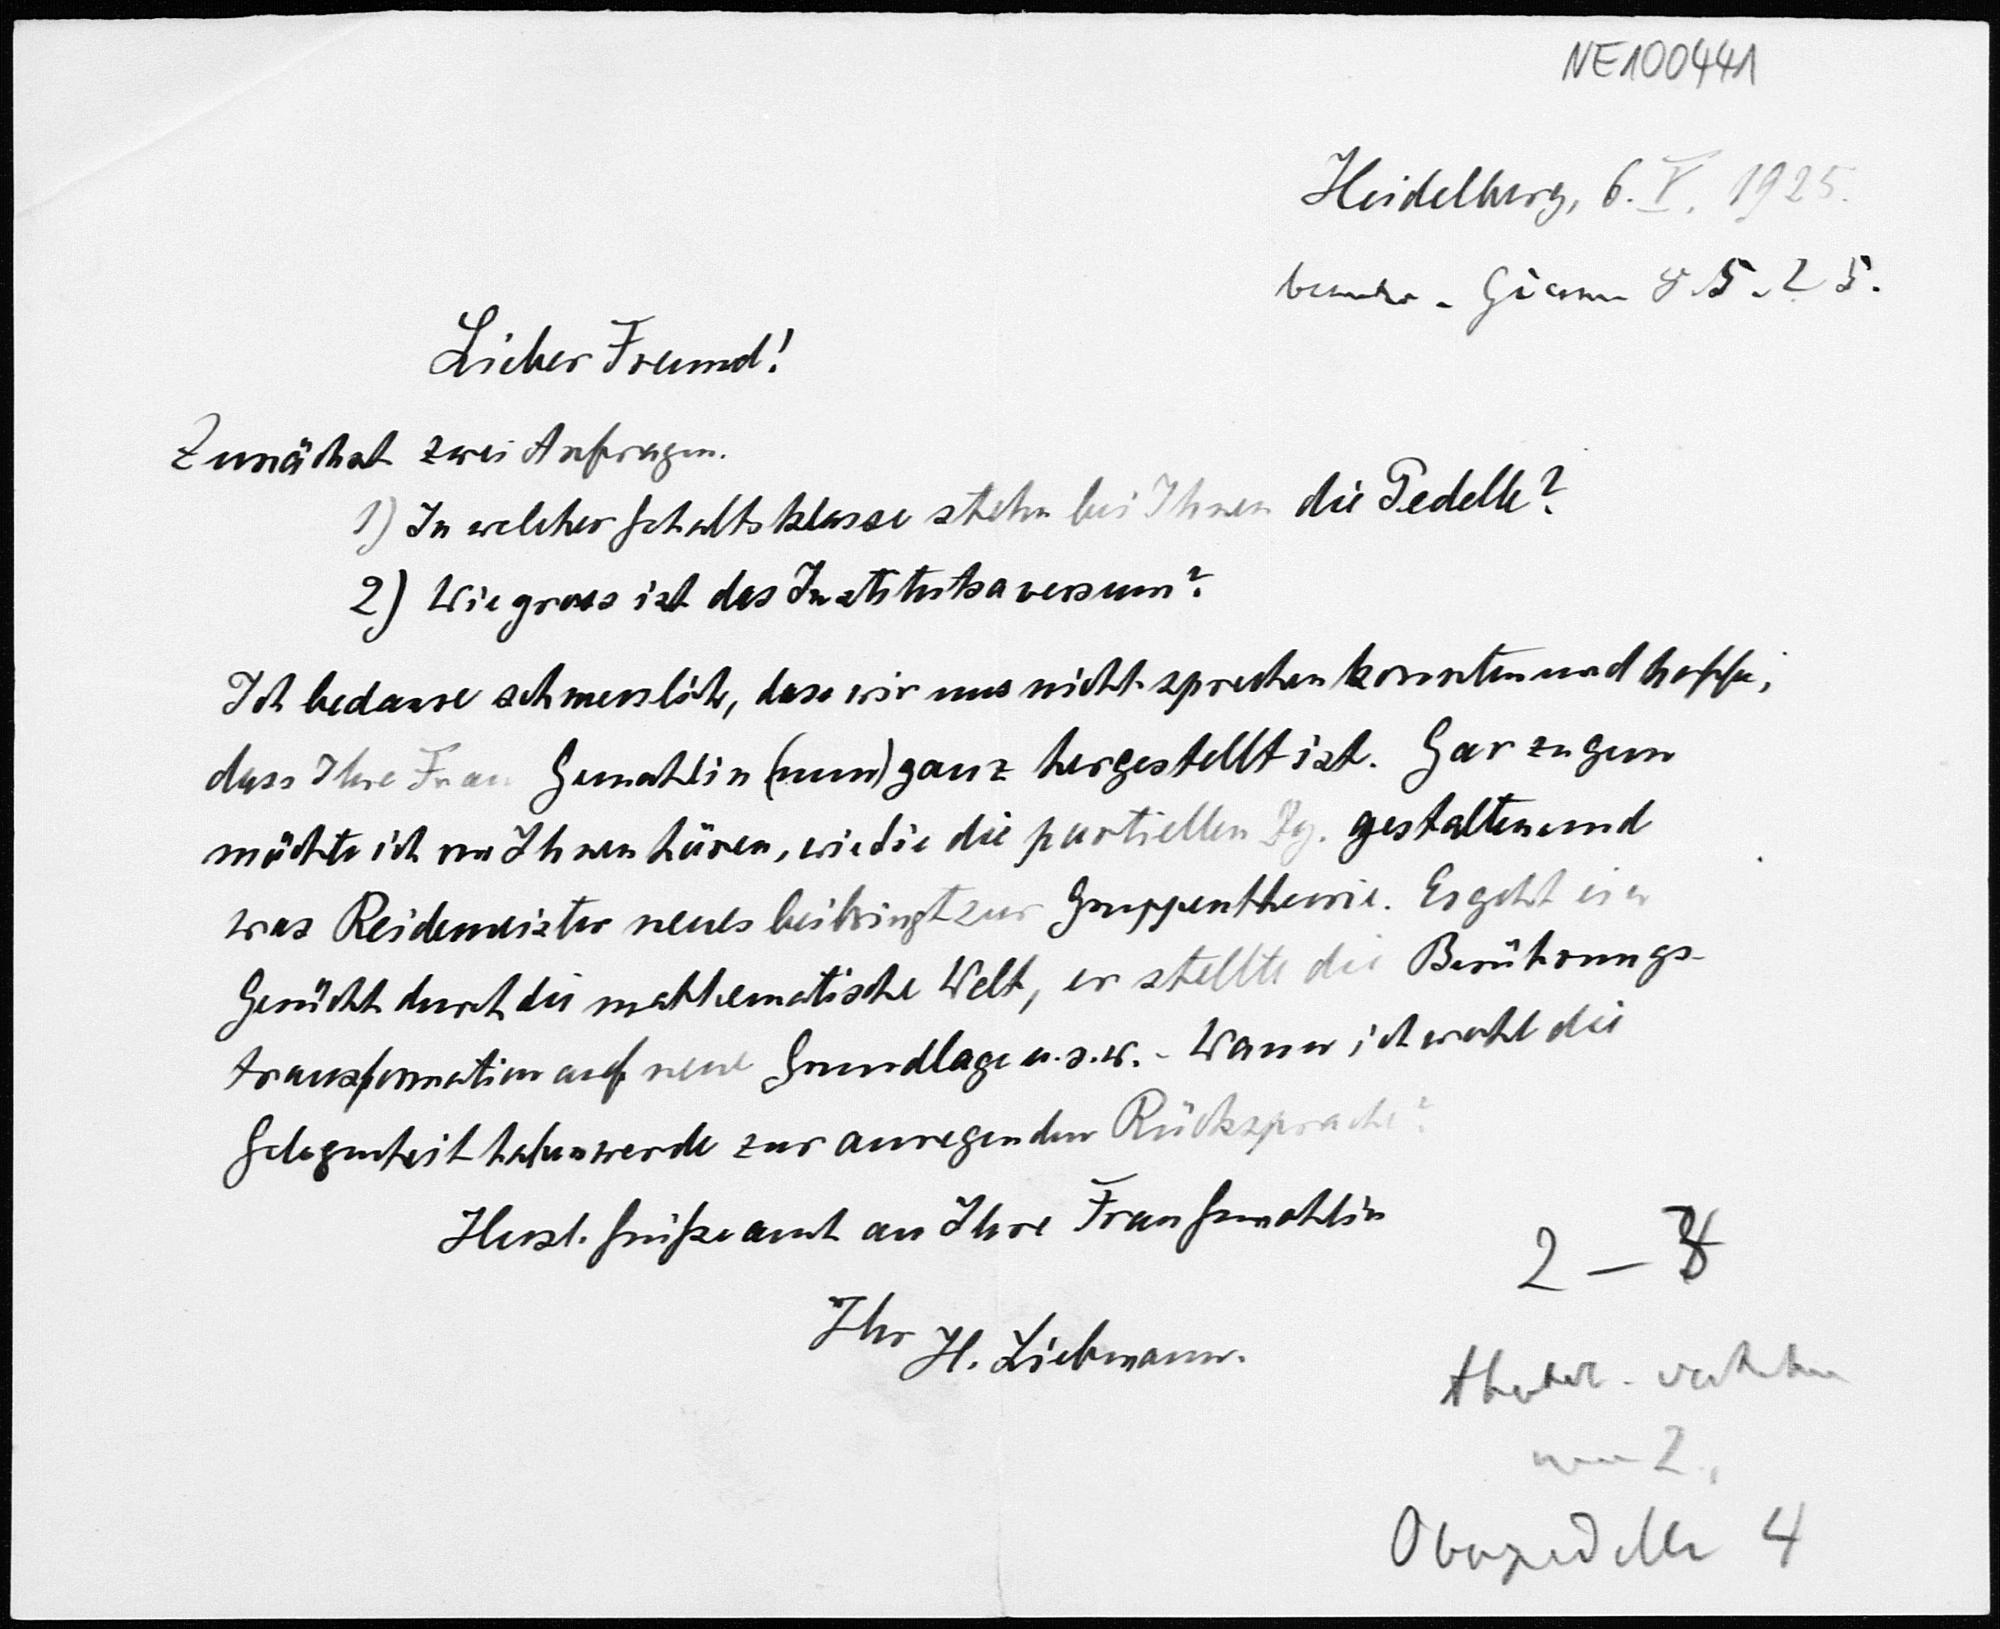 NE100441
Heidelberg, 6. V. 1925.
8.5.25.
Lieber Freund!
Zunächst zwei Anfragen.
1) In welcher Gehaltsklasse stehn bei Ihnen die Pedelle?
2) Wie gross ist das Institutsaversum?
Ich bedaure schmerzlich, dass wir uns nicht sprechen konnten und hoffe,
dass Ihre Frau Gemahlin (nun) ganz hergestellt ist. Gar zu gern
möchte ich von Ihnen hören, wie Sie die partiellen Dg. gestalten und
was Reidemeister neues beibringt zur Gruppentheorie. Es geht ein
Gerücht durch die mathematische Welt, er stellte die Berührungs-
transformation auf neue Grundlage u.s.w. - Wann ich wohl die
Gelegenheit haben werde zur anregenden Rücksprache?
Herzl. Grüsse auch an Ihre Frau Gemahlin
Ihr H. Liebmann.
2 —
2.
Oberpedelle 4